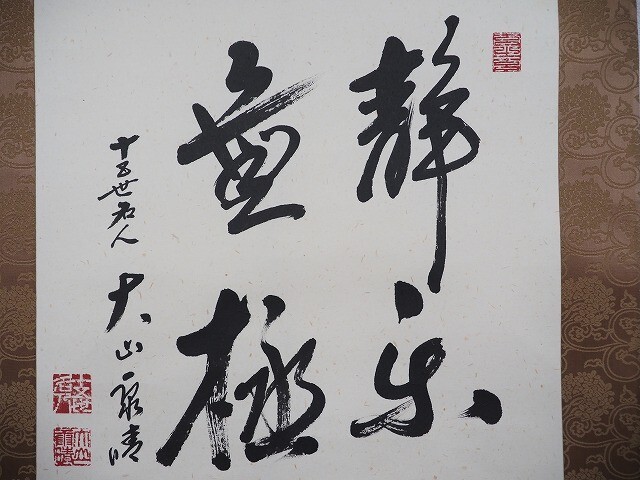 静楽
無極
十五世名人
大山康晴